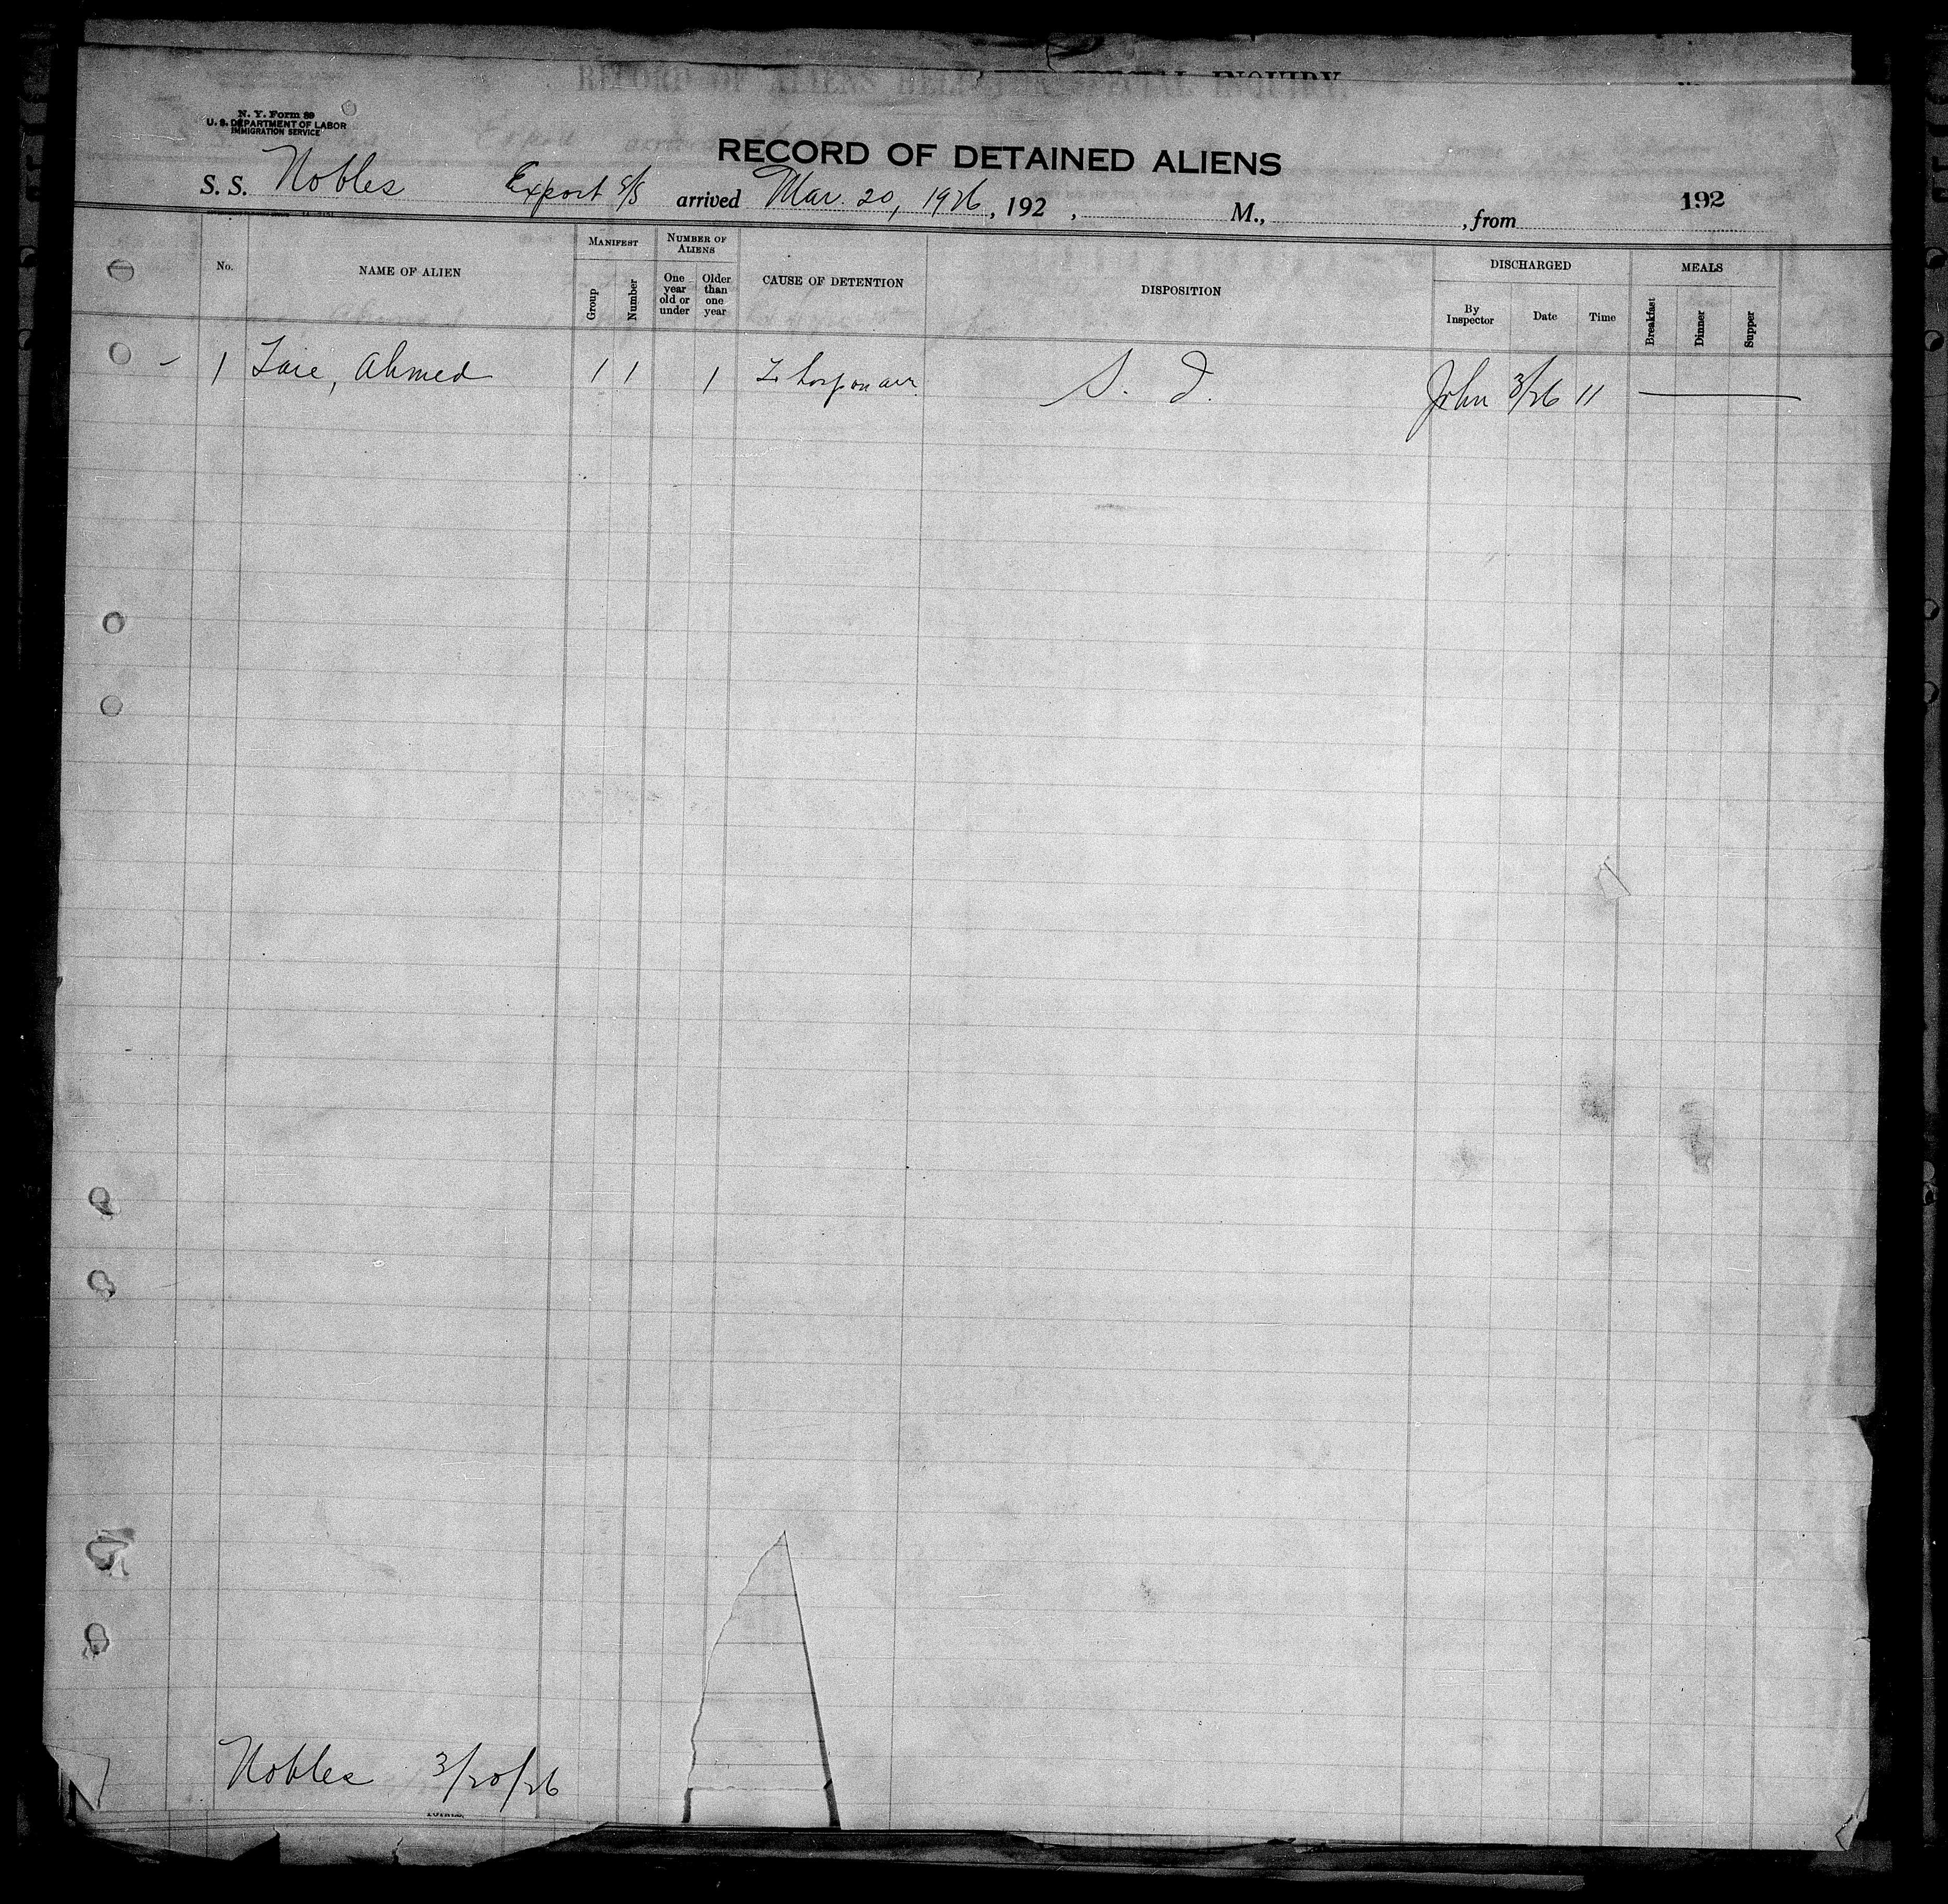 RECORD OF ALIENS HELD FOR SPECIAL INQUIRY
N. Y. Form 89
U. S. DEPARTMENT OF LABOR
IMMIGRATION SERVICE
RECORD OF DETAINED ALIENS
S. S. Nobles Export S/S arrived Mar. 20, 1926, 192 , M., , from 192
No. NAME OF ALIEN MANIFEST Group Number NUMBER OF ALIENS One year old or under Older than one year CAUSE OF DETENTION DISPOSITION DISCHARGED By Inspector Date Time MEALS Breakfast Dinner Supper
– 1 Zaie, Ahmed 1 1 1 To hosp on arr. S. I. John 3/26 11
Nobles 3/20/26